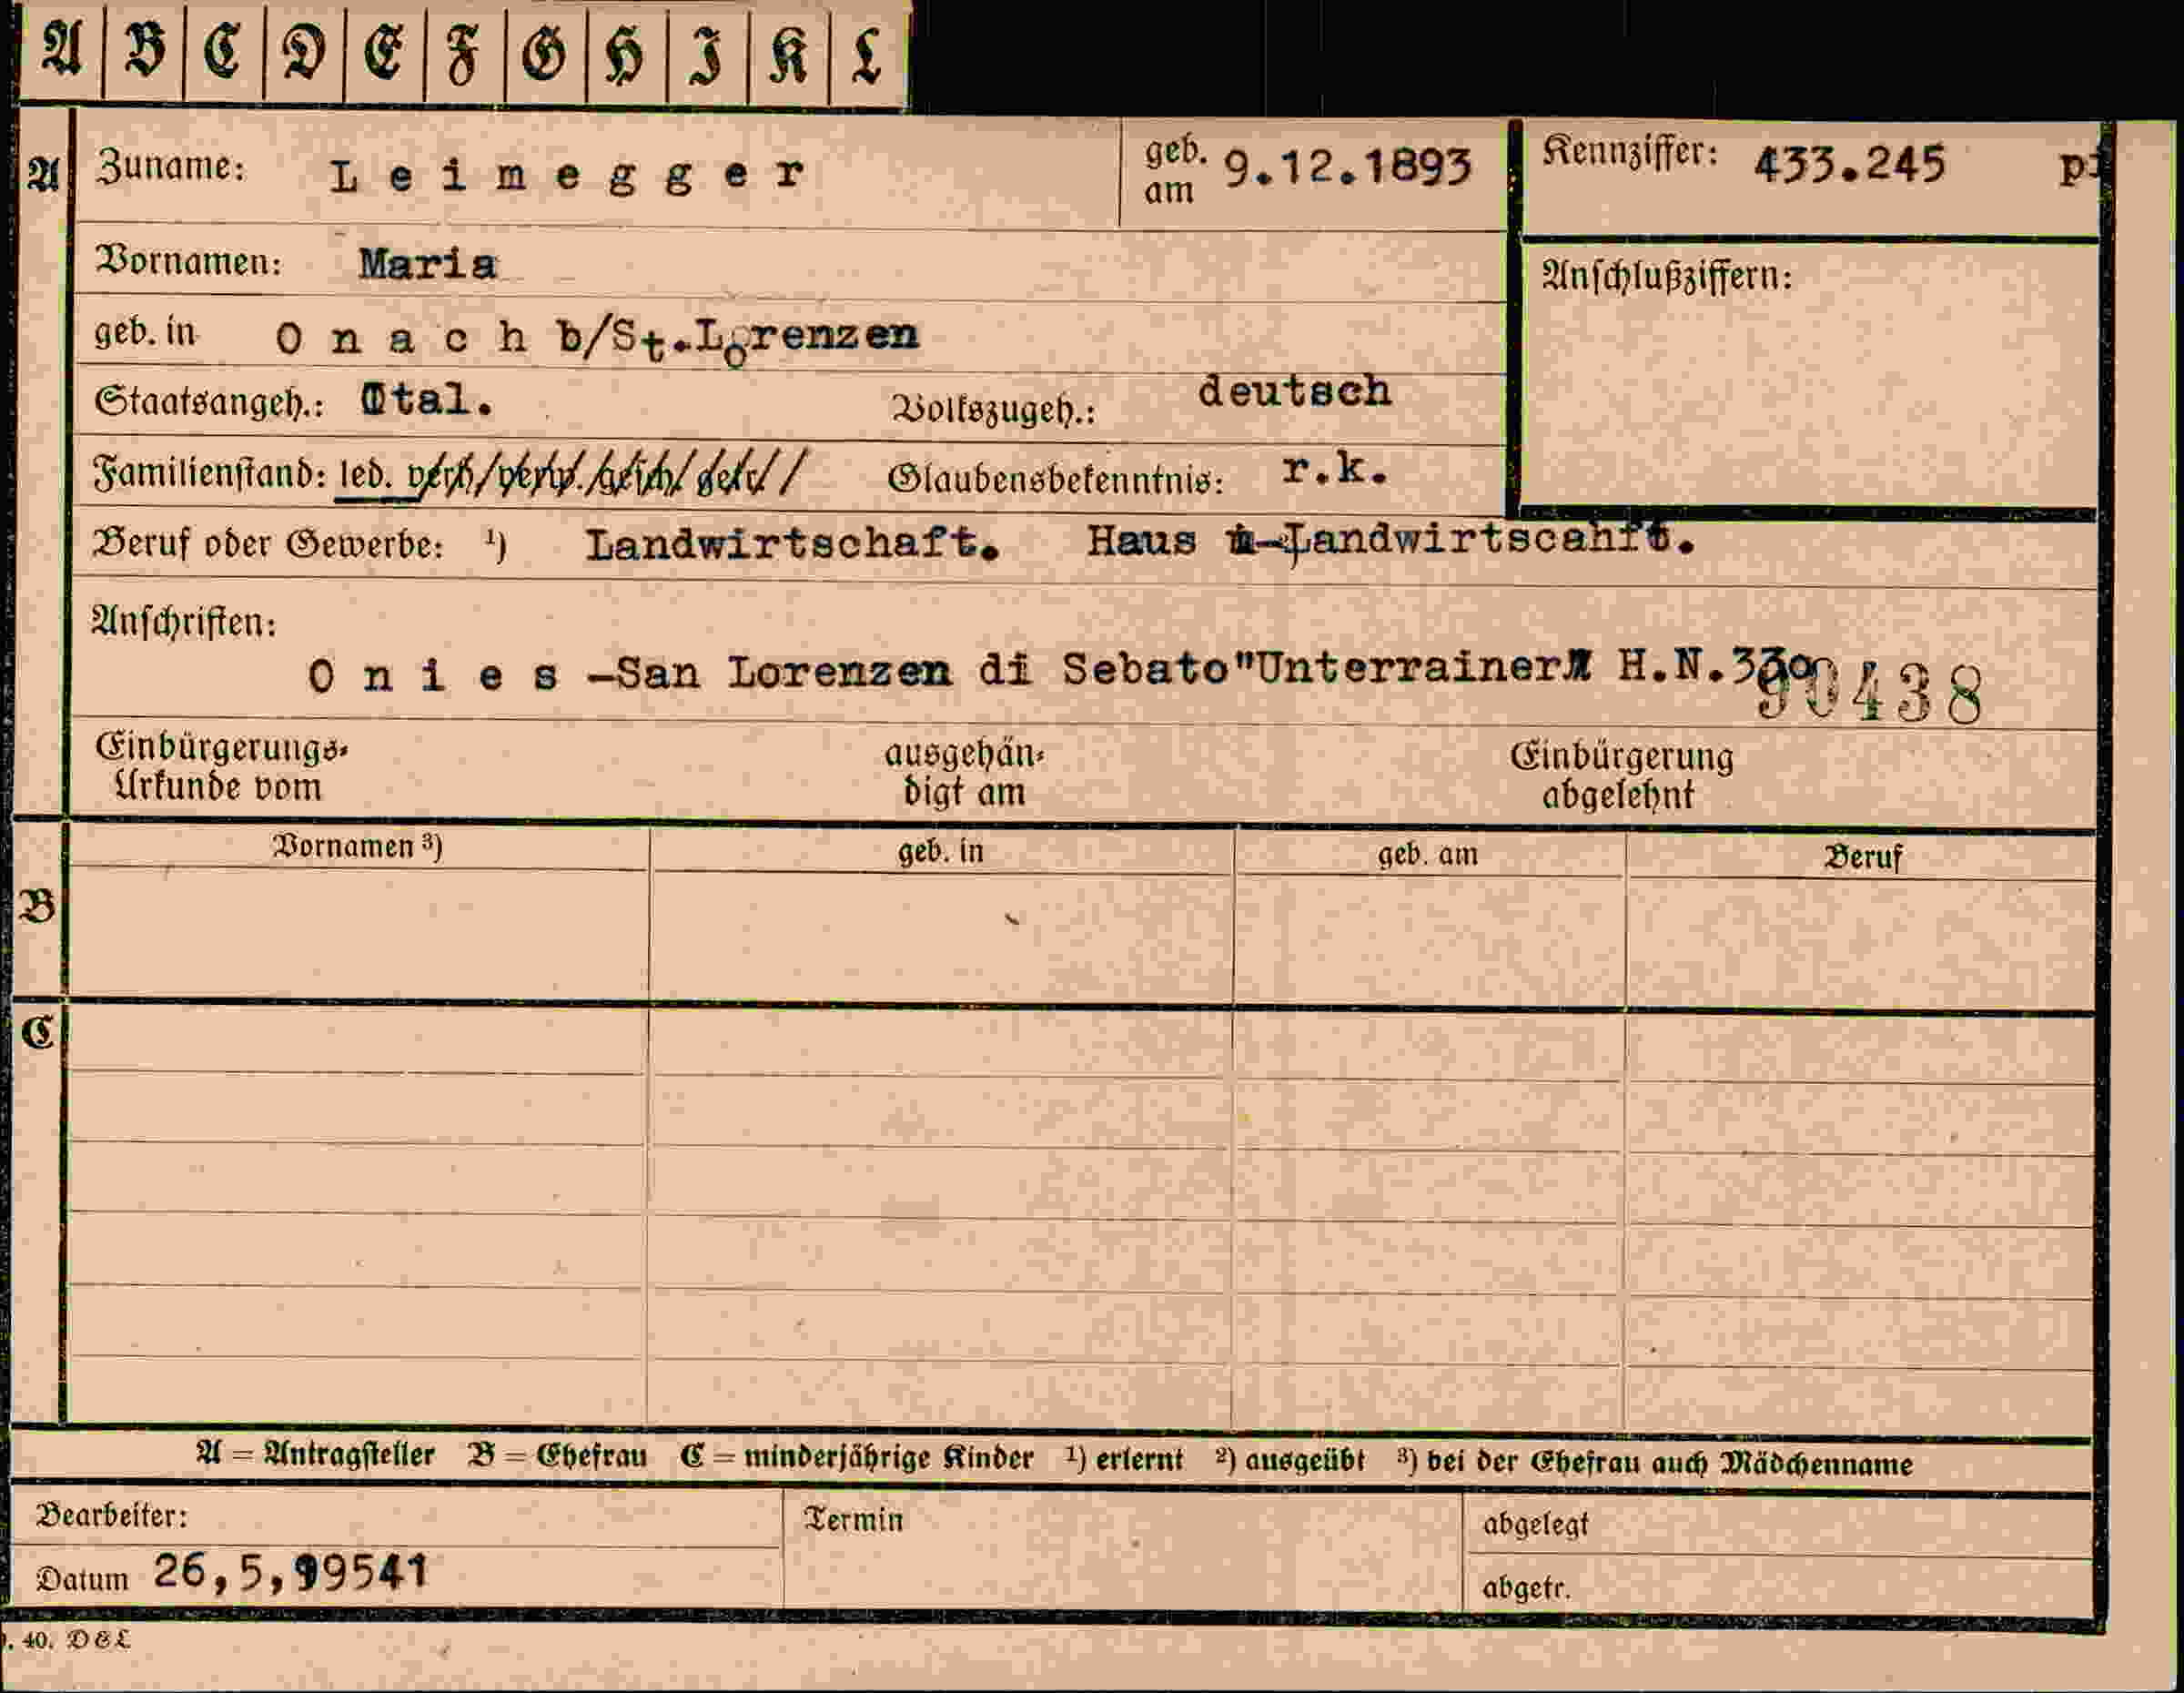 A B C D E F G H I K L
A Zuname: Leimegger geb. am 9.12.1893 Kennziffer: 433.245 pi
Vornamen: Maria Anschlußziffern:
geb. in Onach b/St.Lorenzen
Staatsangeh.: Ital. Volkszugeh.: deutsch
Familienstand: led. verh/verw./gesch/ Glaubensbekenntnis: r.k.
Beruf oder Gewerbe: ¹) Landwirtschaft. Haus -Landwirtscahft.
Anschriften:
Onies -San Lorenzen di Sebato"Unterrainer" H.N. 90438
Einbürgerungs- ausgehän- Einbürgerung
Urkunde vom digt am abgelehnt
Vornamen ³) geb. in geb. am Beruf
B
C
A = Antragsteller B = Ehefrau C = minderjährige Kinder ¹) erlernt ²) ausgeübt ³) bei der Ehefrau auch Mädchenname
Bearbeiter: Termin abgelegt
Datum 26,5,19541 abgetr.
. 40. D & L